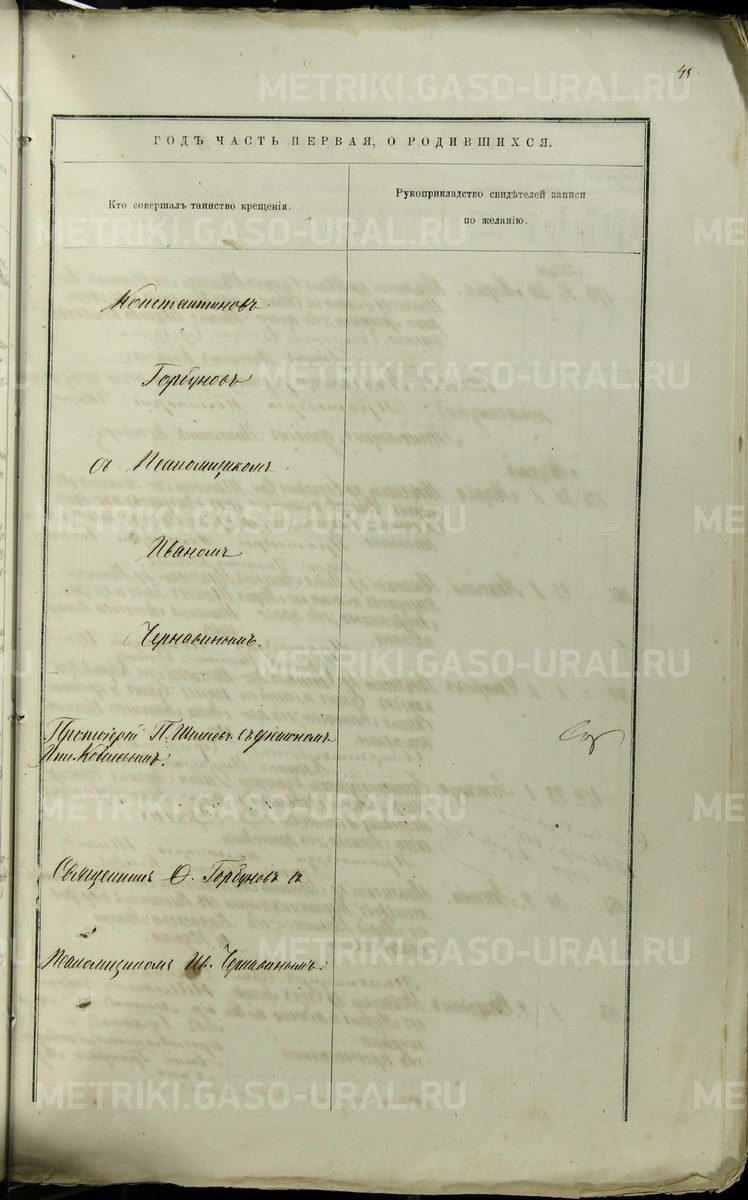 45
ГОДЪ ЧАСТЬ ПЕРВАЯ, О РОДИВШИХСЯ.
Кто совершалъ таинство крещенія.
Рукоприкладство свидѣтелей записи
по желанію.
Константиновъ
Горбуновъ
съ Псаломщикомъ
Иваномъ
Чернавинымъ.
Протоіерей П. съ дьякономъ
Священникъ Ѳ. Горбуновъ съ
Псаломщикомъ Ив. Чернавинымъ.
METRIKI.GASO-URAL.RU